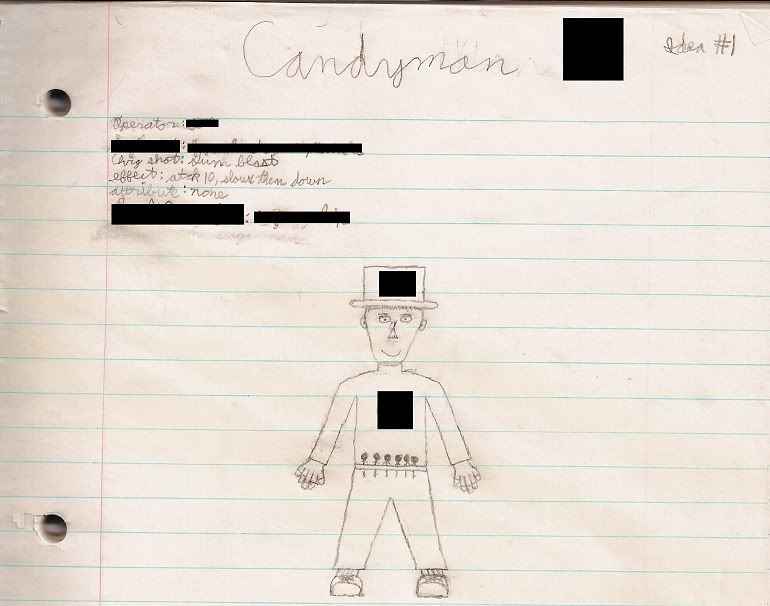 Candyman
Idea #1
Operator:
Chrg shot: Gum blast
effect: atck 10, slows them down
attribute: none